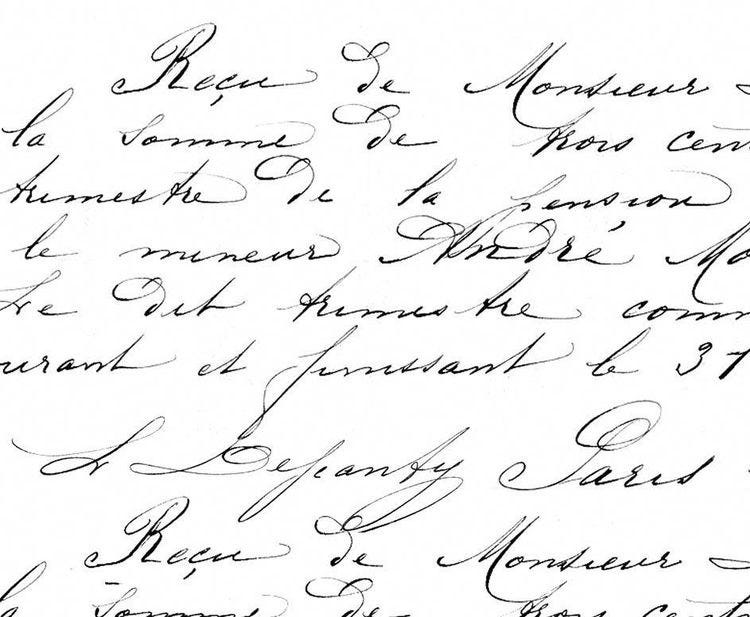 Reçu de Monsieur
la somme de trois cent
trimestre de la pension
le mineur André Mo
Le dit trimestre comm
urant et finissant le 31
Paris
Reçu de Monsieur
la somme de trois cent